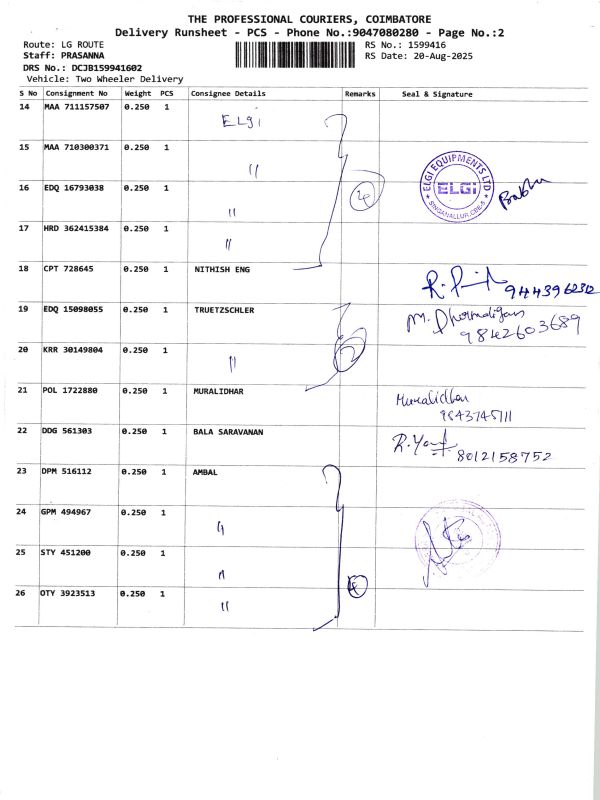 THE PROFESSIONAL COURIERS, COIMBATORE
Delivery Runsheet - PCS - Phone No.:9047080280 - Page No.:2
Route: LG ROUTE RS No.: 1599416
Staff: PRASANNA RS Date: 20-Aug-2025
DRS No.: DCJB159941602
Vehicle: Two Wheeler Delivery
S No Consignment No Weight PCS Consignee Details Remarks Seal & Signature
14 MAA 711157507 0.250 1 ELgi
15 MAA 710300371 0.250 1 "
ELGI EQUIPMENTS LTD
ELGI
SINGANALLUR, CBE-5
16 EDQ 16793038 0.250 1 " 4 Babu
17 HRD 362415384 0.250 1 "
18 CPT 728645 0.250 1 NITHISH ENG 9443960312
19 EDQ 15098055 0.250 1 TRUETZSCHLER M. 9842603689
20 KRR 30149804 0.250 1 " 2
21 POL 1722880 0.250 1 MURALIDHAR Muralidhar
9843745111
22 DDG 561303 0.250 1 BALA SARAVANAN 8012158752
23 DPM 516112 0.250 1 AMBAL
24 GPM 494967 0.250 1 "
25 STY 451200 0.250 1 " 4
26 OTY 3923513 0.250 1 "